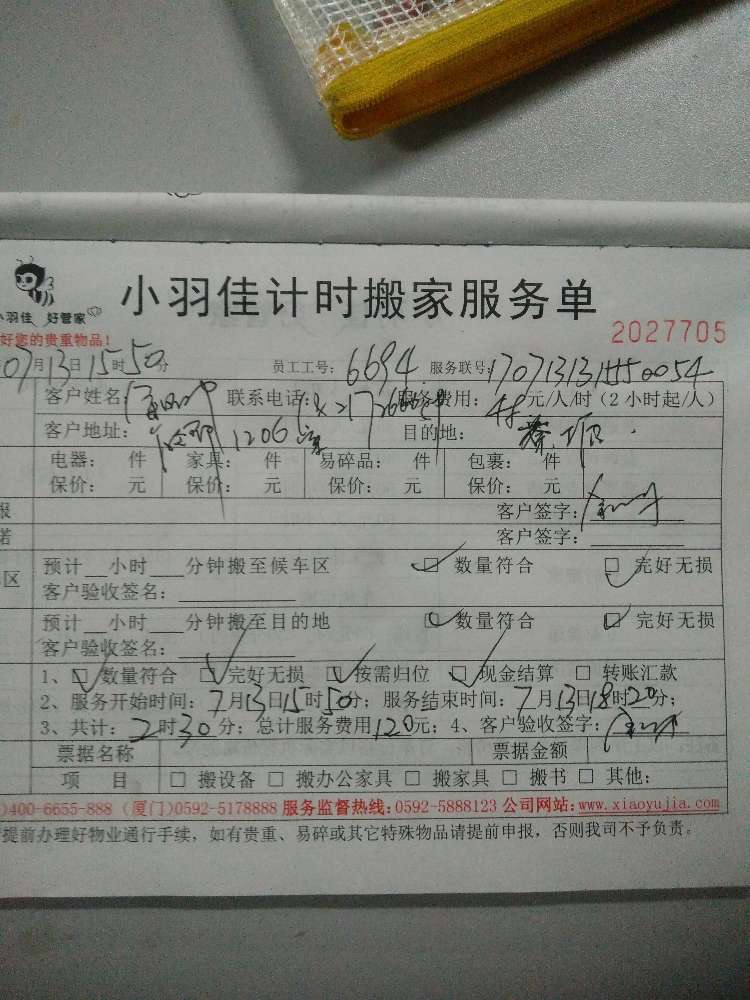 小羽佳 好管家
小羽佳计时搬家服务单
2027705
好您的贵重物品!
07月13日15时50分 员工工号: 6694 服务联号: 17071313155 0054
客户姓名: 联系电话: 服务费用: 48元/人/时(2小时起/人)
客户地址: 1206 目的地:
电器: 件 家具: 件 易碎品: 件 包裹: 件
保价: 元 保价: 元 保价: 元 保价: 元
报 客户签字:
诺 客户签字:
区 预计__小时___分钟搬至候车区 ☑ 数量符合 ☑ 完好无损
客户验收签名:
预计__小时___分钟搬至目的地 ☑ 数量符合 ☑ 完好无损
客户验收签名:
1、☑ 数量符合 ☑ 完好无损 ☑ 按需归位 ☑ 现金结算 □ 转账汇款
2、服务开始时间: 7月13日15时50分; 服务结束时间: 7月13日18时20分;
3、共计: 2时30分; 总计服务费用120元; 4、客户验收签字:
票据名称 票据金额
项 目 □ 搬设备 □ 搬办公家具 □ 搬家具 □ 搬书 □ 其他:
)400-6655-888 (厦门)0592-5178888 服务监督热线:0592-5888123 公司网站:www.xiaoyujia.com
提前办理好物业通行手续,如有贵重、易碎或其它特殊物品请提前申报,否则我司不予负责。